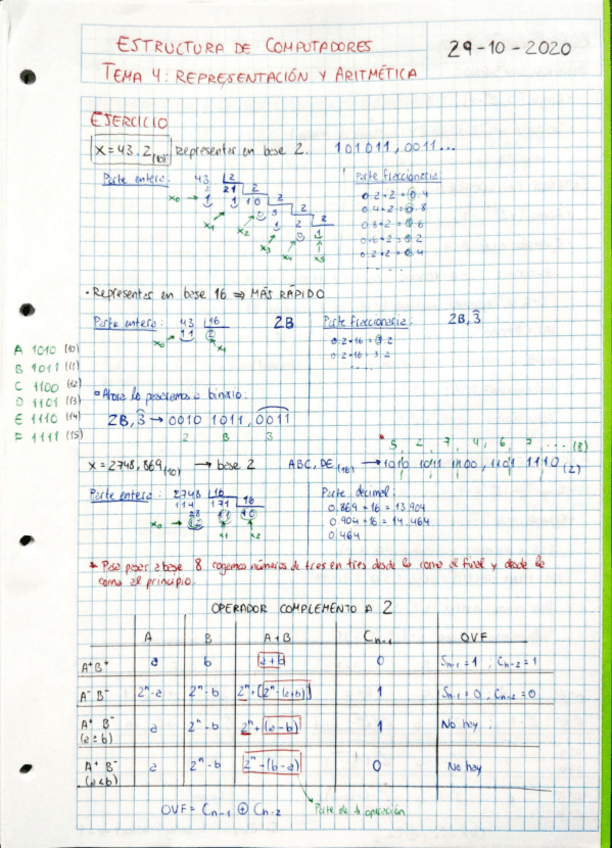 ESTRUCTURA DE COMPUTADORES
TEMA 4: REPRESENTACIÓN Y ARITMÉTICA
29-10-2020
EJERCICIO
X=43.2(10) Representar en base 2. 101011,0011...
Parte entera:
43 |2
21 2
1 10 2
x0 x1 x2 x3 x4 x5
Parte fraccionaria:
0.2*2=0.4
0.4*2=0.8
0.2*2=0.4
• Representar en base 16 ⇒ MÁS RÁPIDO
Parte entera: 43 |16 2B
11 2
x0 x1
Parte fraccionaria: 2B,3
0.2*16=3.2
0.2*16=3.2
A 1010 (10)
B 1011 (11)
C 1100 (12)
D 1101 (13)
E 1110 (14)
F 1111 (15)
Ahora lo pasaremos a binario:
2B,3 → 0010 1011,0011
2 B 3
5 2 7 4, 6 7 ... (8)
X=2748,869(10) → base 2 ABC,DE(16) → 1010 1011 1100, 1101 1110(2)
Parte entera: 2748 |16
114 171 16
28 11 10
12
x0 x1 x2
Parte decimal:
0.869*16=13.904
0.904*16=14.464
0.464
* Para pasar a base 8 cogemos números de tres en tres desde la coma al final y desde la
coma al principio.
OPERADOR COMPLEMENTO A 2
A B A+B Cn-1 OVF
A+B+ a b a+b 0 Sn-1=1, Cn-2=1
A-B- 2ⁿ-a 2ⁿ-b 2ⁿ+(2ⁿ-(a+b)) 1 Sn-1=0, Cn-2=0
A+ B- a 2ⁿ-b 2ⁿ+(a-b) 1 No hay
(a≥b)
A+ B- a 2ⁿ-b 2ⁿ-(b-a) 0 No hay
(a<b)
OVF= Cn-1 ⊕ Cn-2 Parte de la operación